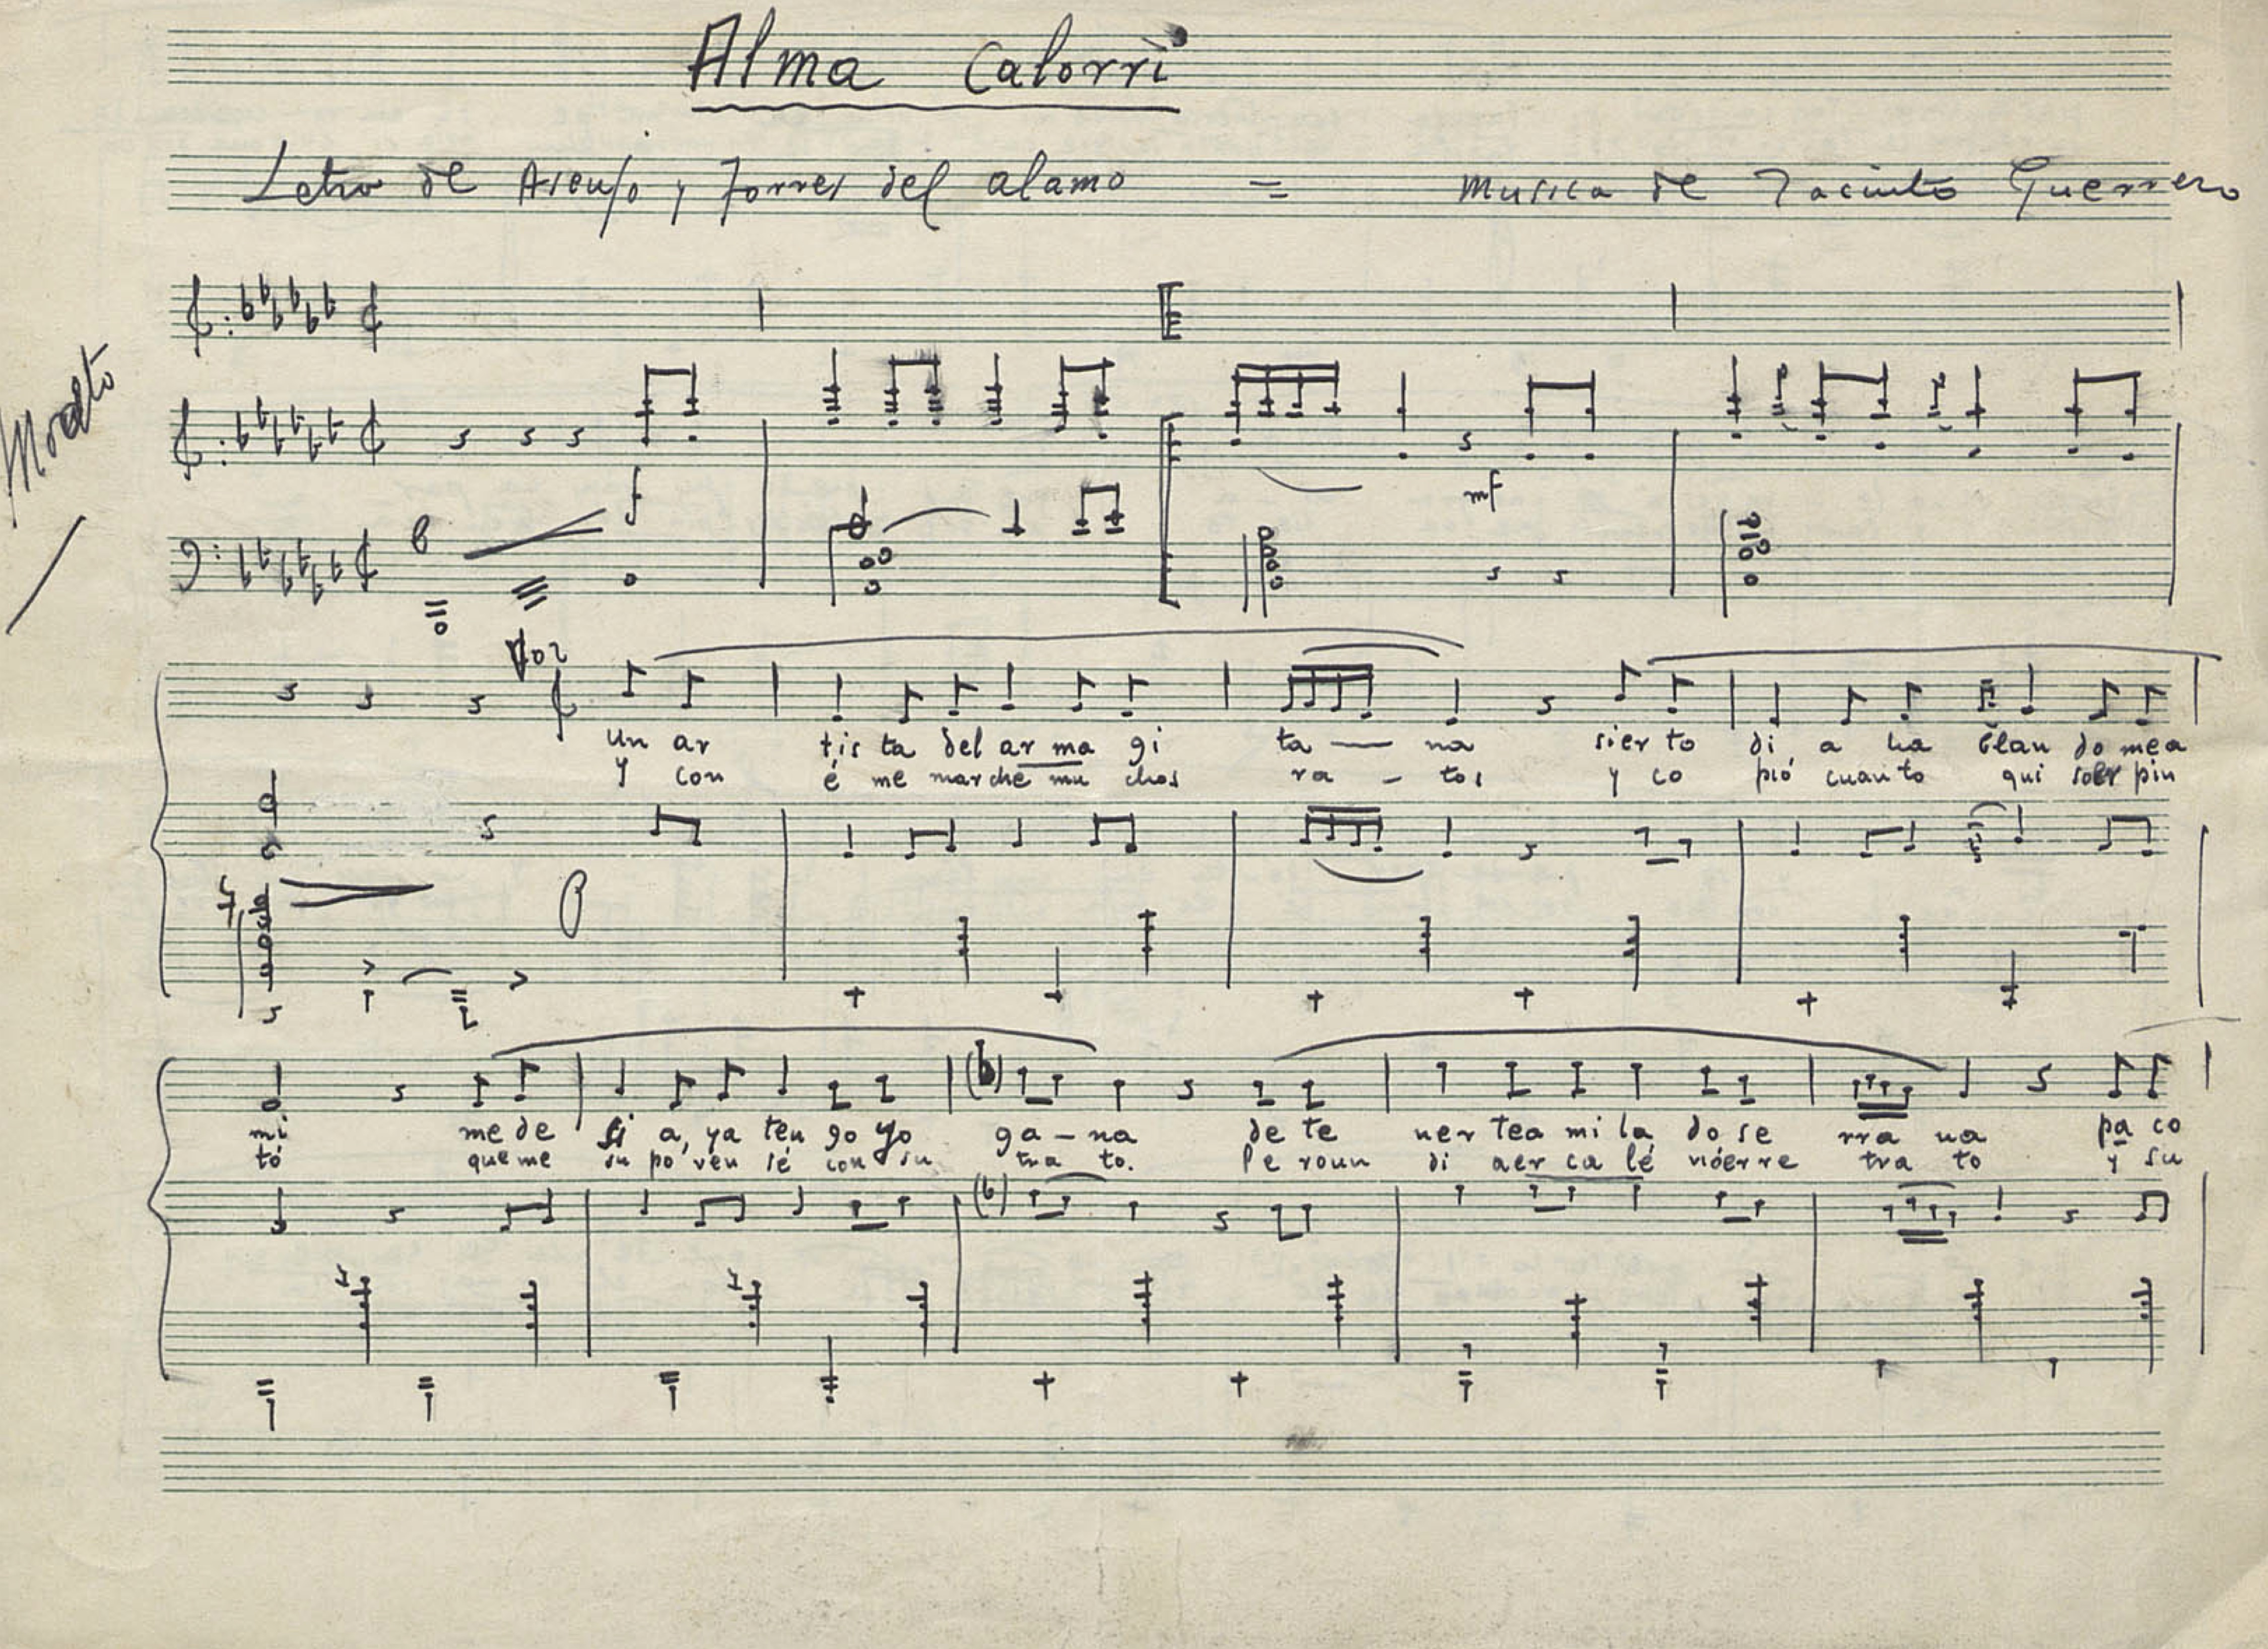 Alma Calorri
Letra de Asenjo y Torres del alamo = Musica de Jacinto Guerrero
Modto
f
mf
Voz
Un ar tis ta del ar ma gi ta — na sier to di a ha blan do mea
Y con é me marché mu chos ra - tos y co pió cuanto qui soer pin
P
mi me de si a, ya ten go yo ga - na de te ner tea mi la do se rra na pa co
tó que me su po ven sé con su tra to. le roun di aer ca lé móer re tra to y su